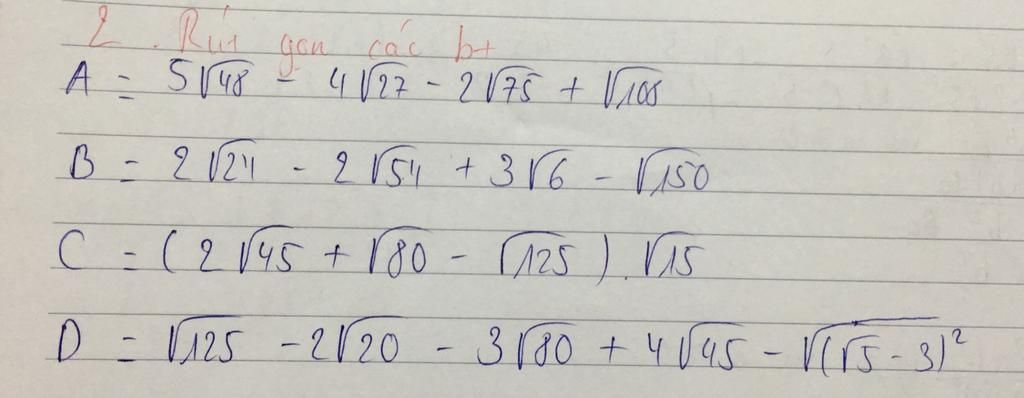 2. Rút gọn các bt
A = 5√48 - 4√27 - 2√75 + √108
B = 2√24 - 2√54 + 3√6 - √150
C = (2√45 + √80 - √125).√15
D = √125 - 2√20 - 3√80 + 4√45 - √(√5 - 3)²